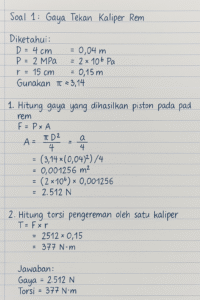 Soal 1 : Gaya Tekan Kaliper Rem
Diketahui:
D = 4 cm = 0,04 m
P = 2 MPa = 2 × 10⁶ Pa
r = 15 cm = 0,15 m
Gunakan π = 3,14
1. Hitung gaya yang dihasilkan piston pada pad
rem
F = P × A
A = πD²/4 = a/4
= (3,14×(0,04)²)/4
= 0,001256 m²
= (2×10⁶) × 0,001256
= 2.512 N
2. Hitung torsi pengereman oleh satu kaliper
T = F × r
= 2512 × 0,15
= 377 N·m
Jawaban:
Gaya = 2.512 N
Torsi = 377 N·m